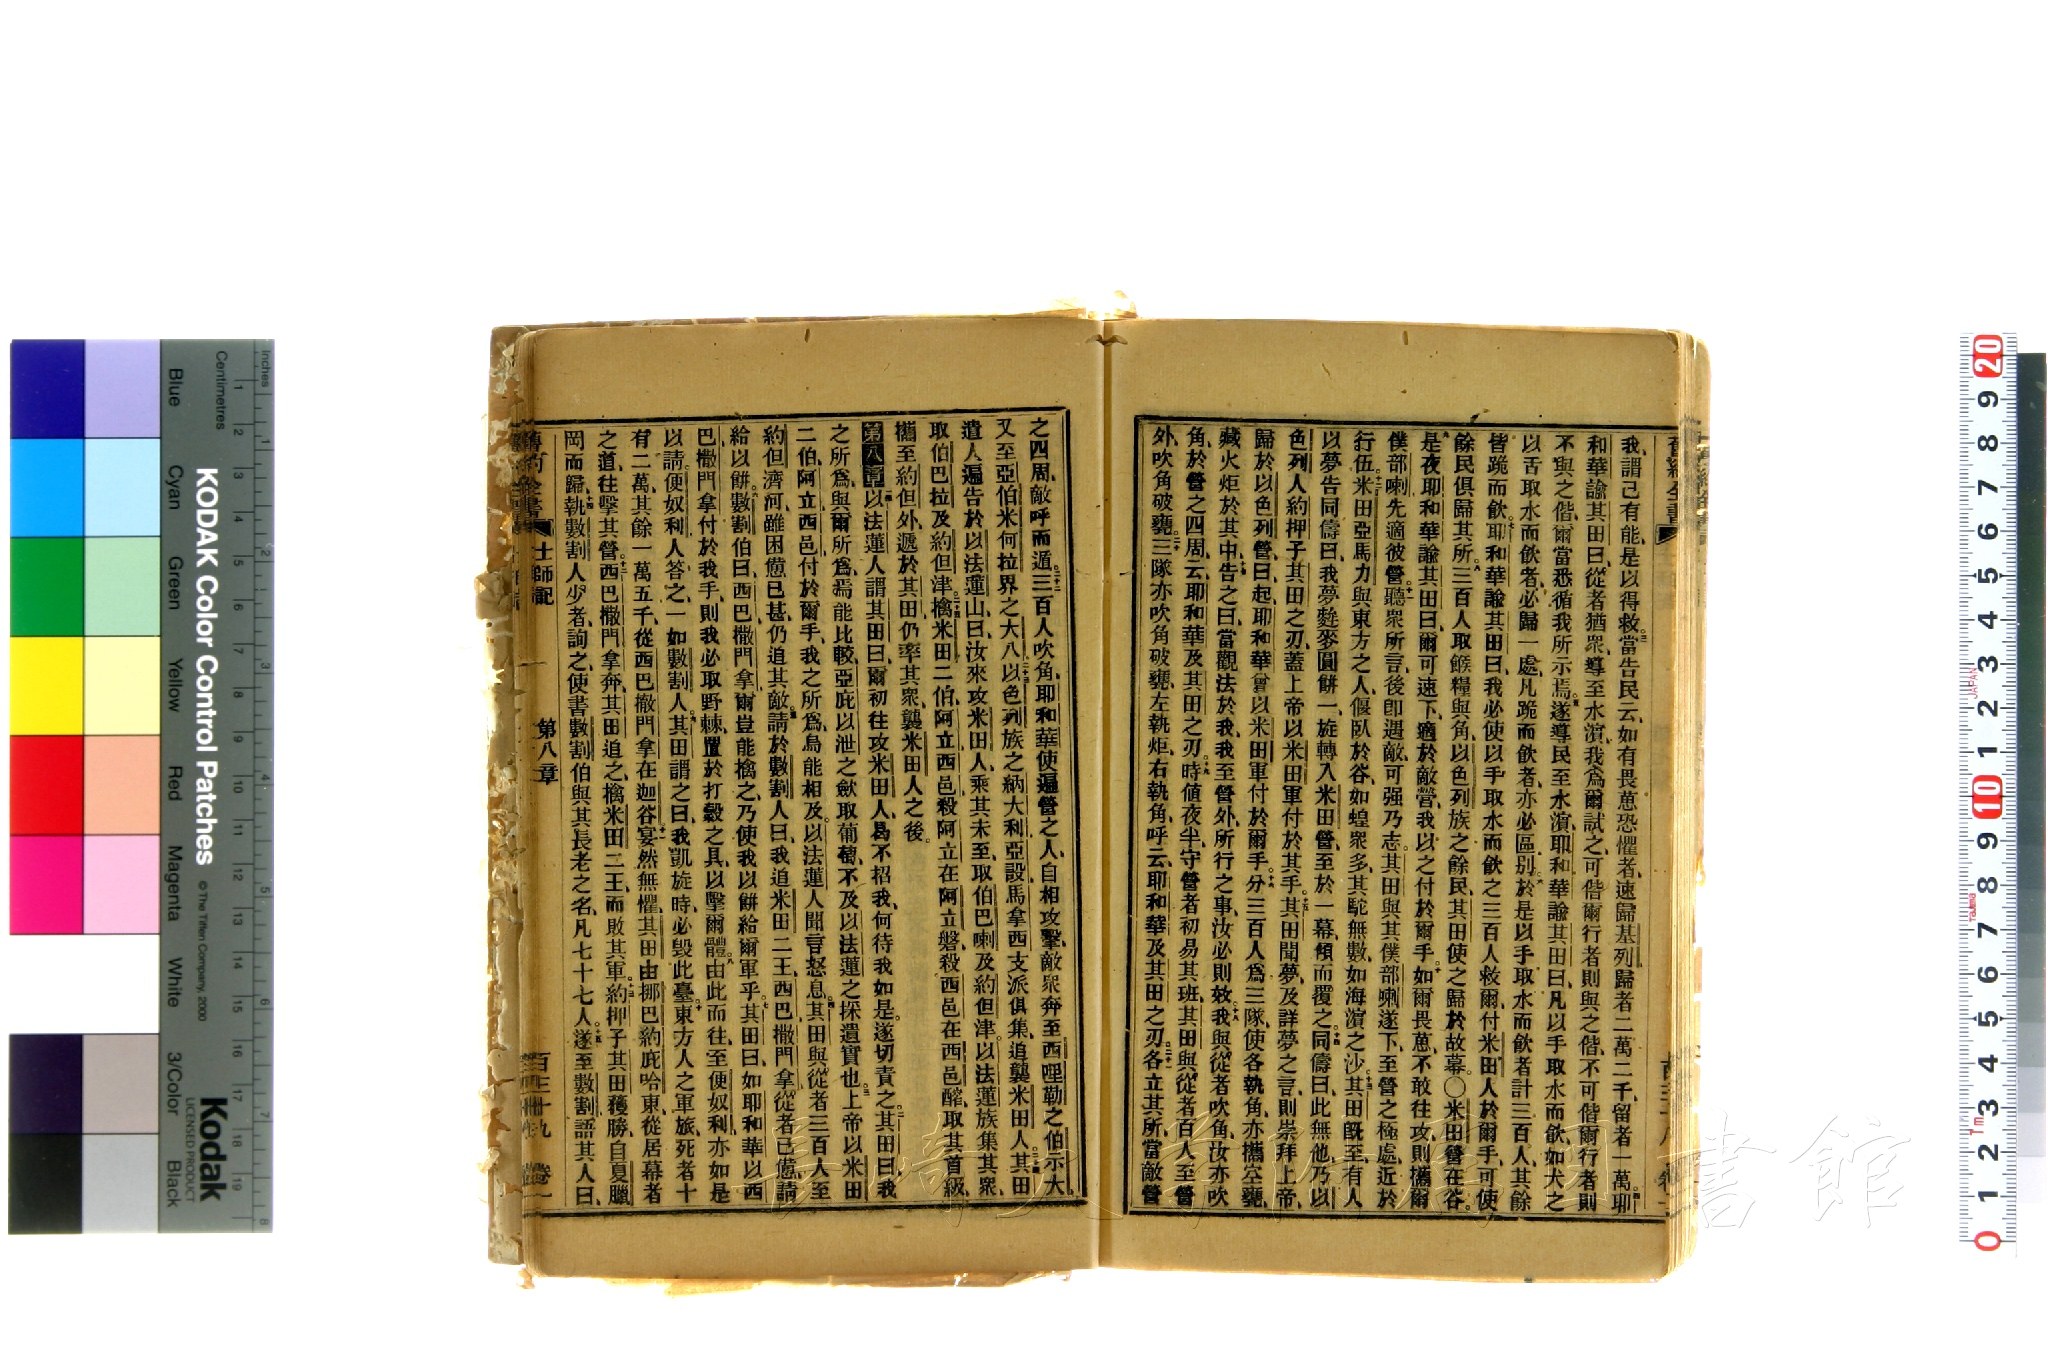 舊約全書
我謂己有能是以得救當告民云如有畏葸恐懼者速歸基列歸者二萬二千留者一萬耶
和華諭其田曰從者猶衆導至水濱我爲爾試之可偕爾行者則與之偕不可偕爾行者則
不與之偕爾當悉循我所示焉遂導民至水濱耶和華諭其田曰凡以手取水而飮如犬之
以舌取水而飮者必歸一處凡跪而飮者亦必區别於是以手取水而飮者計三百人其餘
皆跪而飮耶和華諭其田曰我必使以手取水而飮之三百人救爾付米田人於爾手可使
餘民俱歸其所三百人取餱糧與角以色列族之餘民其田使之歸於故幕〇米田營在谷
是夜耶和華諭其田曰爾可速下適於敵營我以之付於爾手如爾畏葸不敢往攻則攜爾
僕部喇先適彼營聽衆所言後卽遇敵可强乃志其田與其僕部喇遂下至營之極處近於
行伍米田亞馬力與東方之人偃臥於谷如蝗衆多其駝無數如海濱之沙其田旣至有人
以夢告同儔曰我夢麰麥圓餅一旋轉入米田營至於一幕傾而覆之同儔曰此無他乃以
色列人約押子其田之刃蓋上帝以米田軍付於其手其田聞夢及詳夢之言則崇拜上帝
歸於以色列營曰起耶和華曾以米田軍付於爾手分三百人爲三隊使各執角亦攜空甕
藏火炬於其中告之曰當觀法於我我至營外所行之事汝必則效我與從者吹角汝亦吹
角於營之四周云耶和華及其田之刃時値夜半守營者初易其班其田與從者百人至營
外吹角破甕三隊亦吹角破甕左執炬右執角呼云耶和華及其田之刃各立其所當敵營
之四周敵呼而遁三百人吹角耶和華使遍營之人自相攻擊敵衆奔至西哩勒之伯示大
又至亞伯米何拉界之大八以色列族之納大利亞設馬拿西支派俱集追襲米田人其田
遣人遍告於以法蓮山曰汝來攻米田人乘其未至取伯巴喇及約但津以法蓮族集其衆
取伯巴拉及約但津擒米田二伯阿立西邑殺阿立在阿立磐殺西邑在西邑醡取其首級
攜至約但外遞於其田仍率其衆襲米田人之後
第八章以法蓮人謂其田曰爾初往攻米田人曷不招我何待我如是遂切責之其田曰我
之所爲與爾所爲焉能比較亞庇以泄之歛取葡萄不及以法蓮之採遺實也上帝以米田
二伯阿立西邑付於爾手我之所爲烏能相及以法蓮人聞言怒息其田與從者三百人至
約但濟河雖困憊已甚仍追其敵請於數割人曰我追米田二王西巴撒門拿從者已憊請
給以餅數割伯曰西巴撒門拿爾豈能擒之乃使我以餅給爾軍乎其田曰如耶和華以西
巴撒門拿付於我手則我必取野棘置於打穀之具以擊爾體由此而往至便奴利亦如是
以請便奴利人答之一如數割人其田謂之曰我凱旋時必毀此臺東方人之軍旅死者十
有二萬其餘一萬五千從西巴撒門拿在迦谷宴然無懼其田由挪巴約庇哈東從居幕者
之道往擊其營西巴撒門拿奔其田追之擒米田二王而敗其軍約押子其田獲勝自夏臘
岡而歸執數割人少者詢之使書數割伯與其長老之名凡七十七人遂至數割語其人曰
士師記 第八章 百三十九 卷一